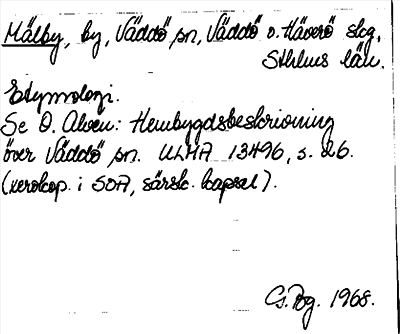 Mälby, by, Väddö sn, Väddö o. Häverö skg,
Sthlms län.
Etymologi.
Se O. Alvén: Hembygdsbeskrivning
över Väddö sn. ULMA 13496, s. 26.
(xerokop. i SOA, särsk. kapsel).
G. Pg. 1968.